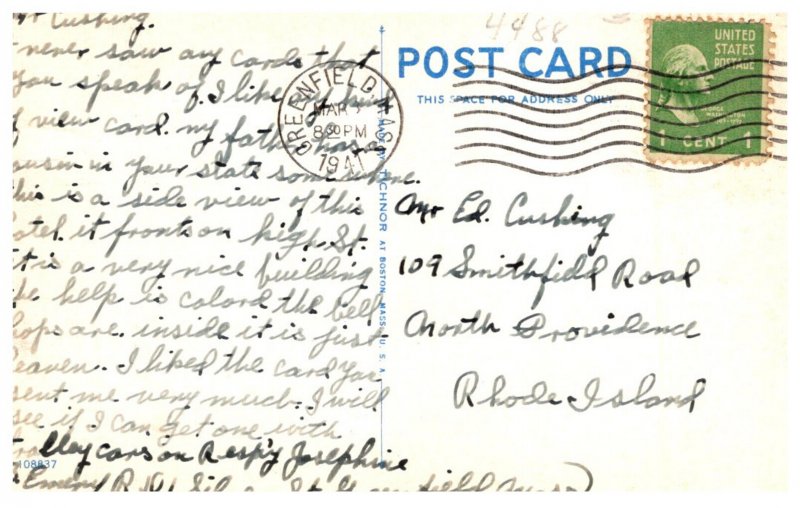 Mr Cushing.
I never saw any cards that
you speak of. I like
view card. my father has a
cousin in your state somewhere.
this is a side view of this
Hotel it fronts on high St.
it is a very nice building
the help is colord the bell
hops are. inside it is just
heaven. I liked the card you
sent me very much. I will
see if I can get one with
cars on Resp'y Josephine
108837
4488
POST CARD
THIS SPACE FOR ADDRESS ONLY
GREENFIELD, MASS.
MAR
8 30 PM
1941
UNITED
STATES
POSTAGE
GEORGE
WASHINGTON
1 CENT 1
TICHNOR AT BOSTON, MASS., U. S. A.
Mr Ed. Cushing
109 Smithfield Road
North Providence
Rhode Island